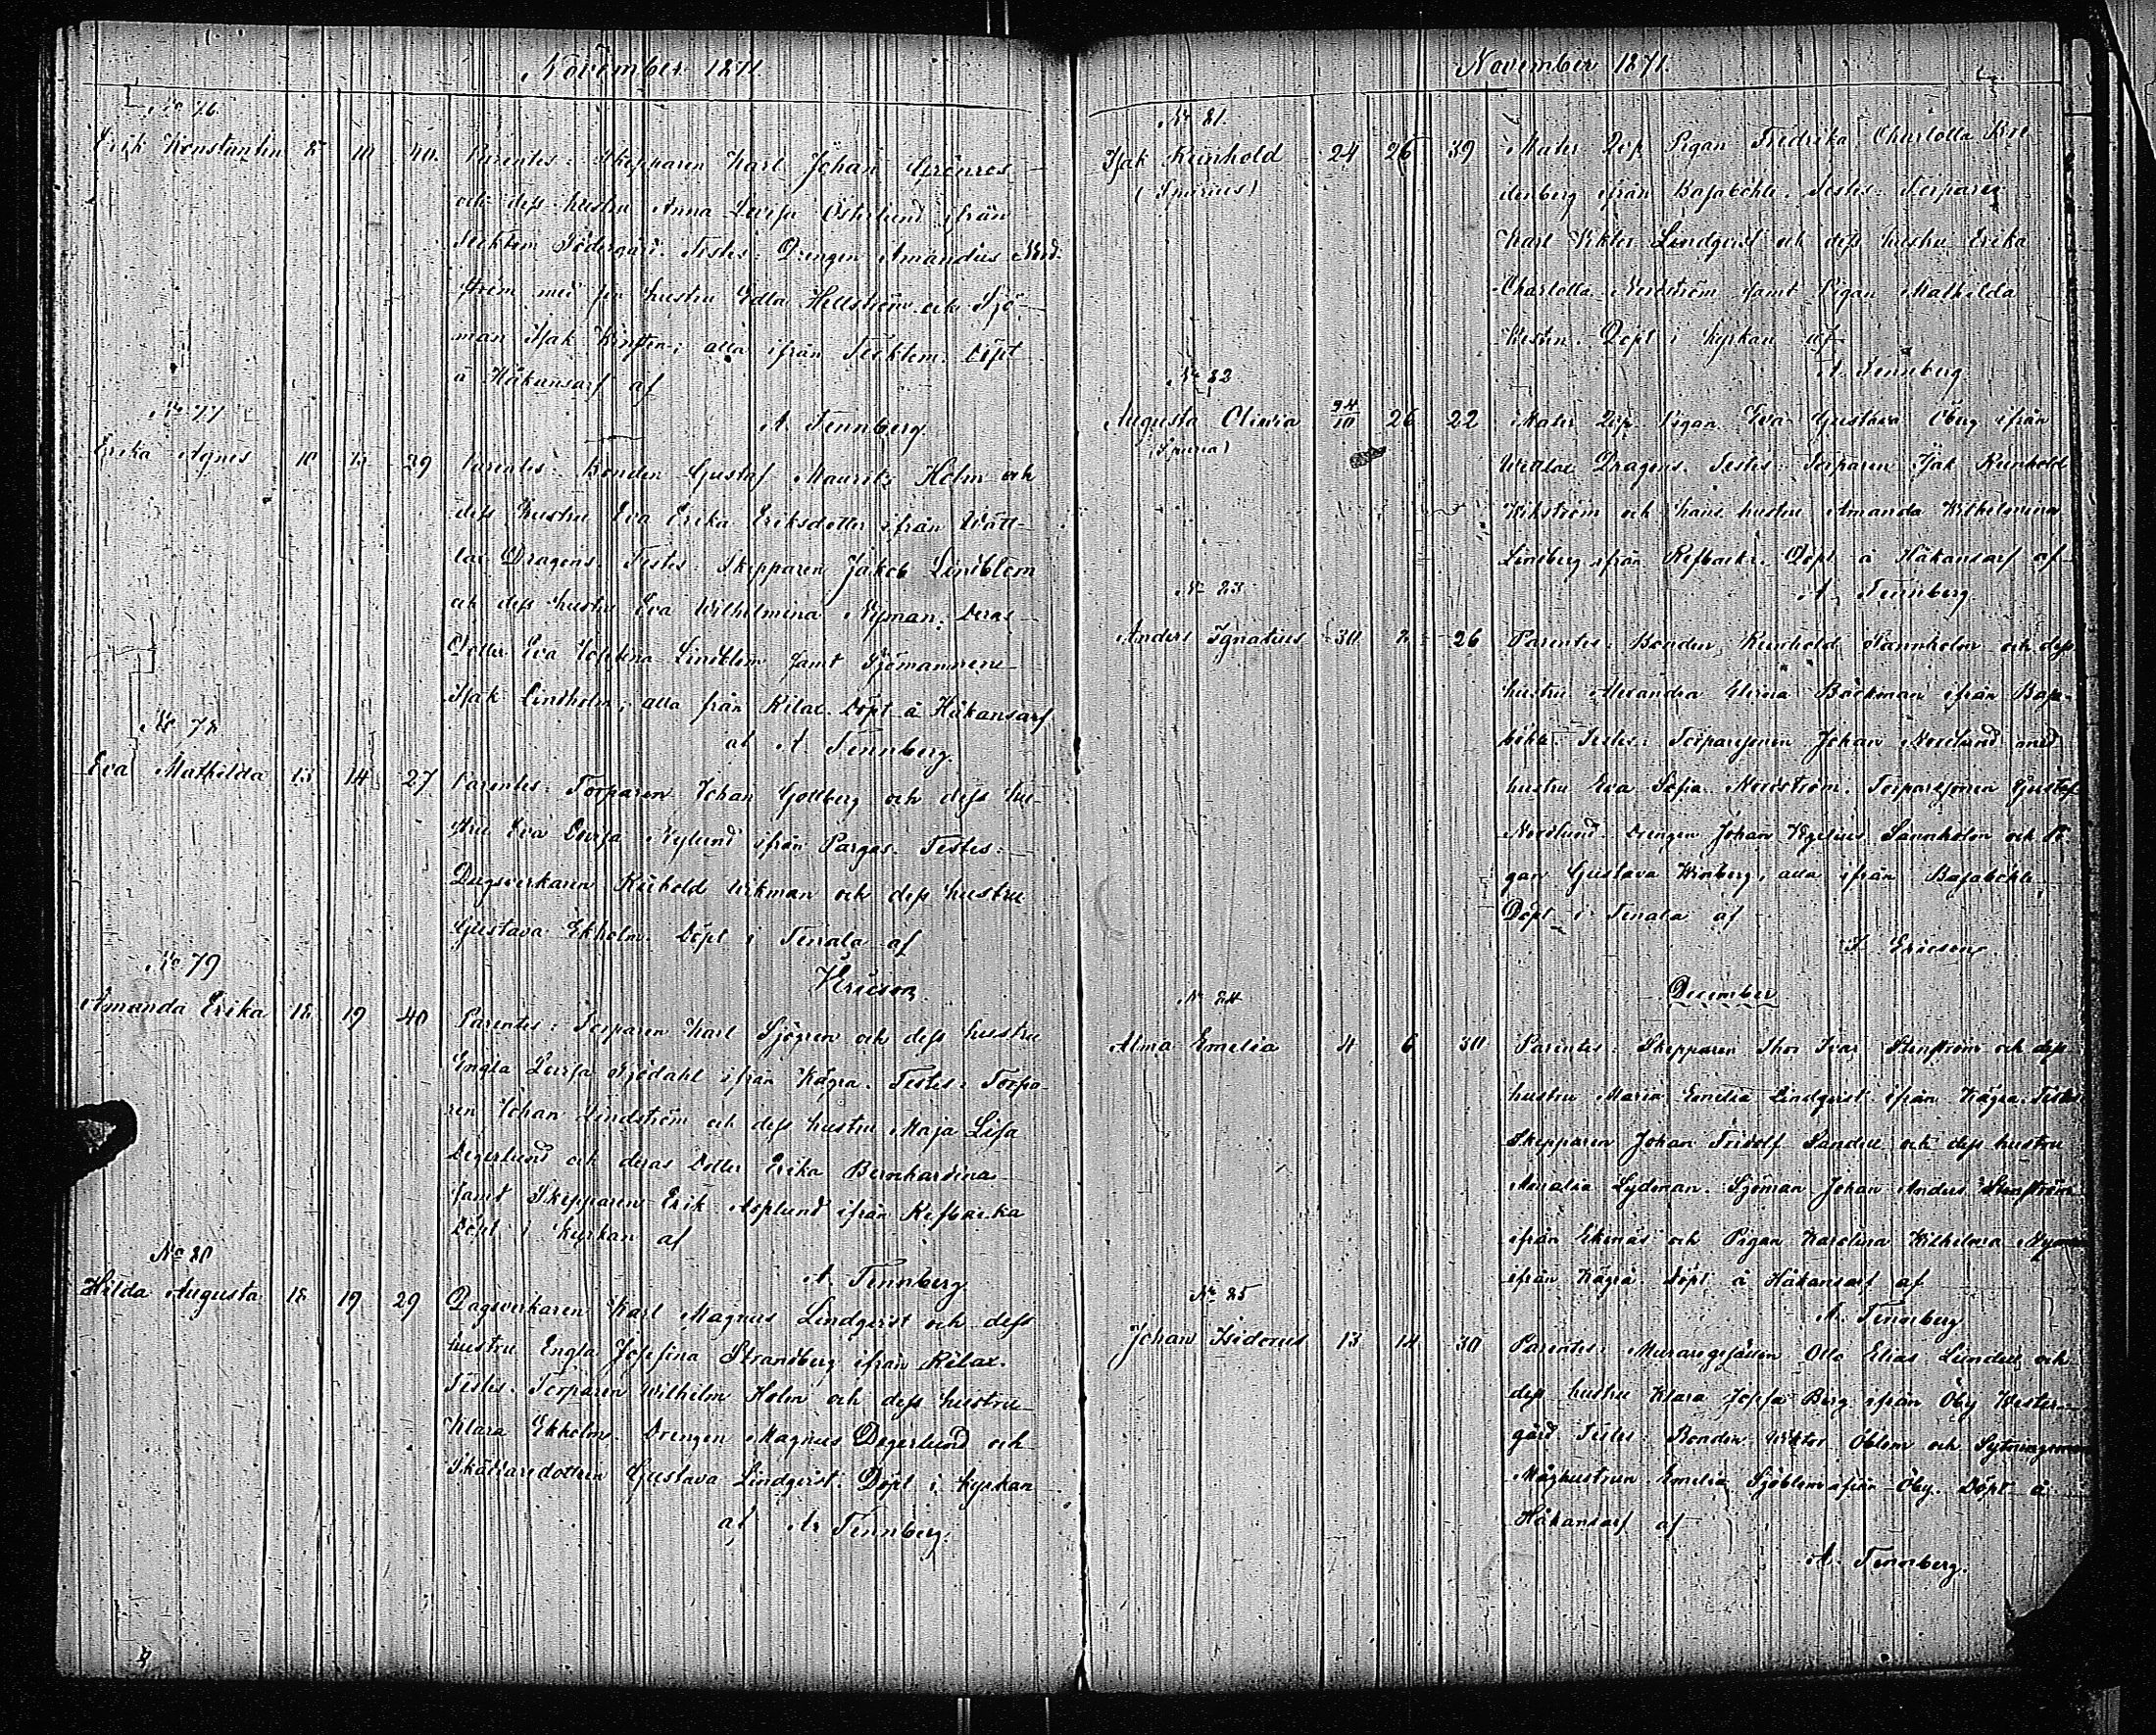 November 1871
No 76.
Erik Konstantin 8 10 40. Parentes: Skepparen Karl Johan Grönroos
och dess hustru Anna Lovisa Österlund ifrån
Tecktom Södergård. Testes: Drengen Amandus Nord-
ström med sin hustru Edla Hellström och Sjö-
man Isak alla ifrån Tecktom. Döpt
å Håkansarf af
A Tennberg
No 77
Erika Agnes 10 13 29 Parentes: Bonden Gustaf Mauritz Holm och
dess hustru Eva Erika Eriksdotter ifrån Vätt-
lax Dragens. Testes: Skepparen Jakob Lindblom
och dess hustru Eva Wilhelmina Nyman; Deras
Dotter Eva Josefina Lindblom samt Sjömannen
Isak Lindholm; alla från Rilax. Döpt å Håkansarf
af A Tennberg
No 78
Eva Mathilda 13 14 27 Parentes: Torparen Johan Gottberg och dess hu-
stru Eva Lovisa Nylund ifrån Pargas. Testes:
Dagsverkaren Reihold Wikman och dess hustru
Gustava Ekholm. Döpt i Tenala af
Ericson
No 79
Amanda Erika 18 19 40 Parentes: Torparen Karl Sjögren och dess hustru
Engla Lovisa Sjödahl ifrån Kägra. Testes: Torpa-
ren Johan Lindström och dess hustru Maja Lisa
Degerlund och deras Dotter Erika Bernhardina
samt Skepparen Erik Asplund ifrån Refbacka
Döpt i Kyrkan af
A. Tennberg
No 80
Hilda Augusta 18 19 29 Dagsverkaren Karl Magnus Lindqvist och dess
hustru Engla Josefina Strandberg ifrån Rilax.
Testes. Torparen Wilhelm Holm och dess hustru
Klara Ekholm. Drengen Magnus Degerlund och
Skällaredottren Gustava Lindqvist. Döpt i Kyrkan
af A. Tennberg.
November 1871.
No 81
Isak Reinhold 24 26 39 Mater Dep. Pigan Fredrika Charlotta
(Spurius) denberg ifrån Basaböhle. Testes: Torparen
Karl Viktor Lindqvist och dess hustru Erika
Charlotta Nordström samt Pigan Mathilda
Döpt i Kyrkan af
A. Tennberg
No 82
Augusta Olivia 24/10 26 22 Mater Dep. Pigan Eva Gustava Öberg ifrån
(Spuria) Wettlax Dragens. Testes: Torparen Isak Reinhold
Wikström och hans hustru Amanda Wilhelmina
Lindberg ifrån Refbacka. Döpt å Håkansarf af
A. Tennberg
No 83
Anders Ignatius 30 26 Parentes: Bonden Reinhold Sannholm och dess
hustru Alexandra Bäckman ifrån Basa-
böhle. Testes: Torparesonen Johan Nordlund med
hustru Eva Sofia Nordström. Torparesonen Gustaf
Nordlund. Drengen Johan Sannholm och Pi-
gan Gustava Winberg; alla ifrån Basaböhle.
Döpt i Tenala af
Ericson
December
No 84
Alma Emelia 4 6 30 Parentes: Skepparen Thor Ivar Stenström och dess
hustru Maria Emilia Lindqvist ifrån Kägra. Testes
Skepparen Johan Fridolf Sandell och dess hustru
Amalia Lydman. Sjöman Johan Anders Stenström
ifrån Ekenäs och Pigan Karolina Wilhelmina Nyman
ifrån Kägra. Döpt å Håkansarf af
A. Tennberg
No 85
Johan Isidorus 13 14 30 Parentes: Muraregesällen Otto Elias Lundell och
dess hustru Klara Josefa Berg ifrån Öby Wester-
gård Testes: Bonden Viktor Öblom och
Måghustrun Emelia Sjöblom ifrån Öby. Döpt å
Håkansarf af
A. Tennberg.